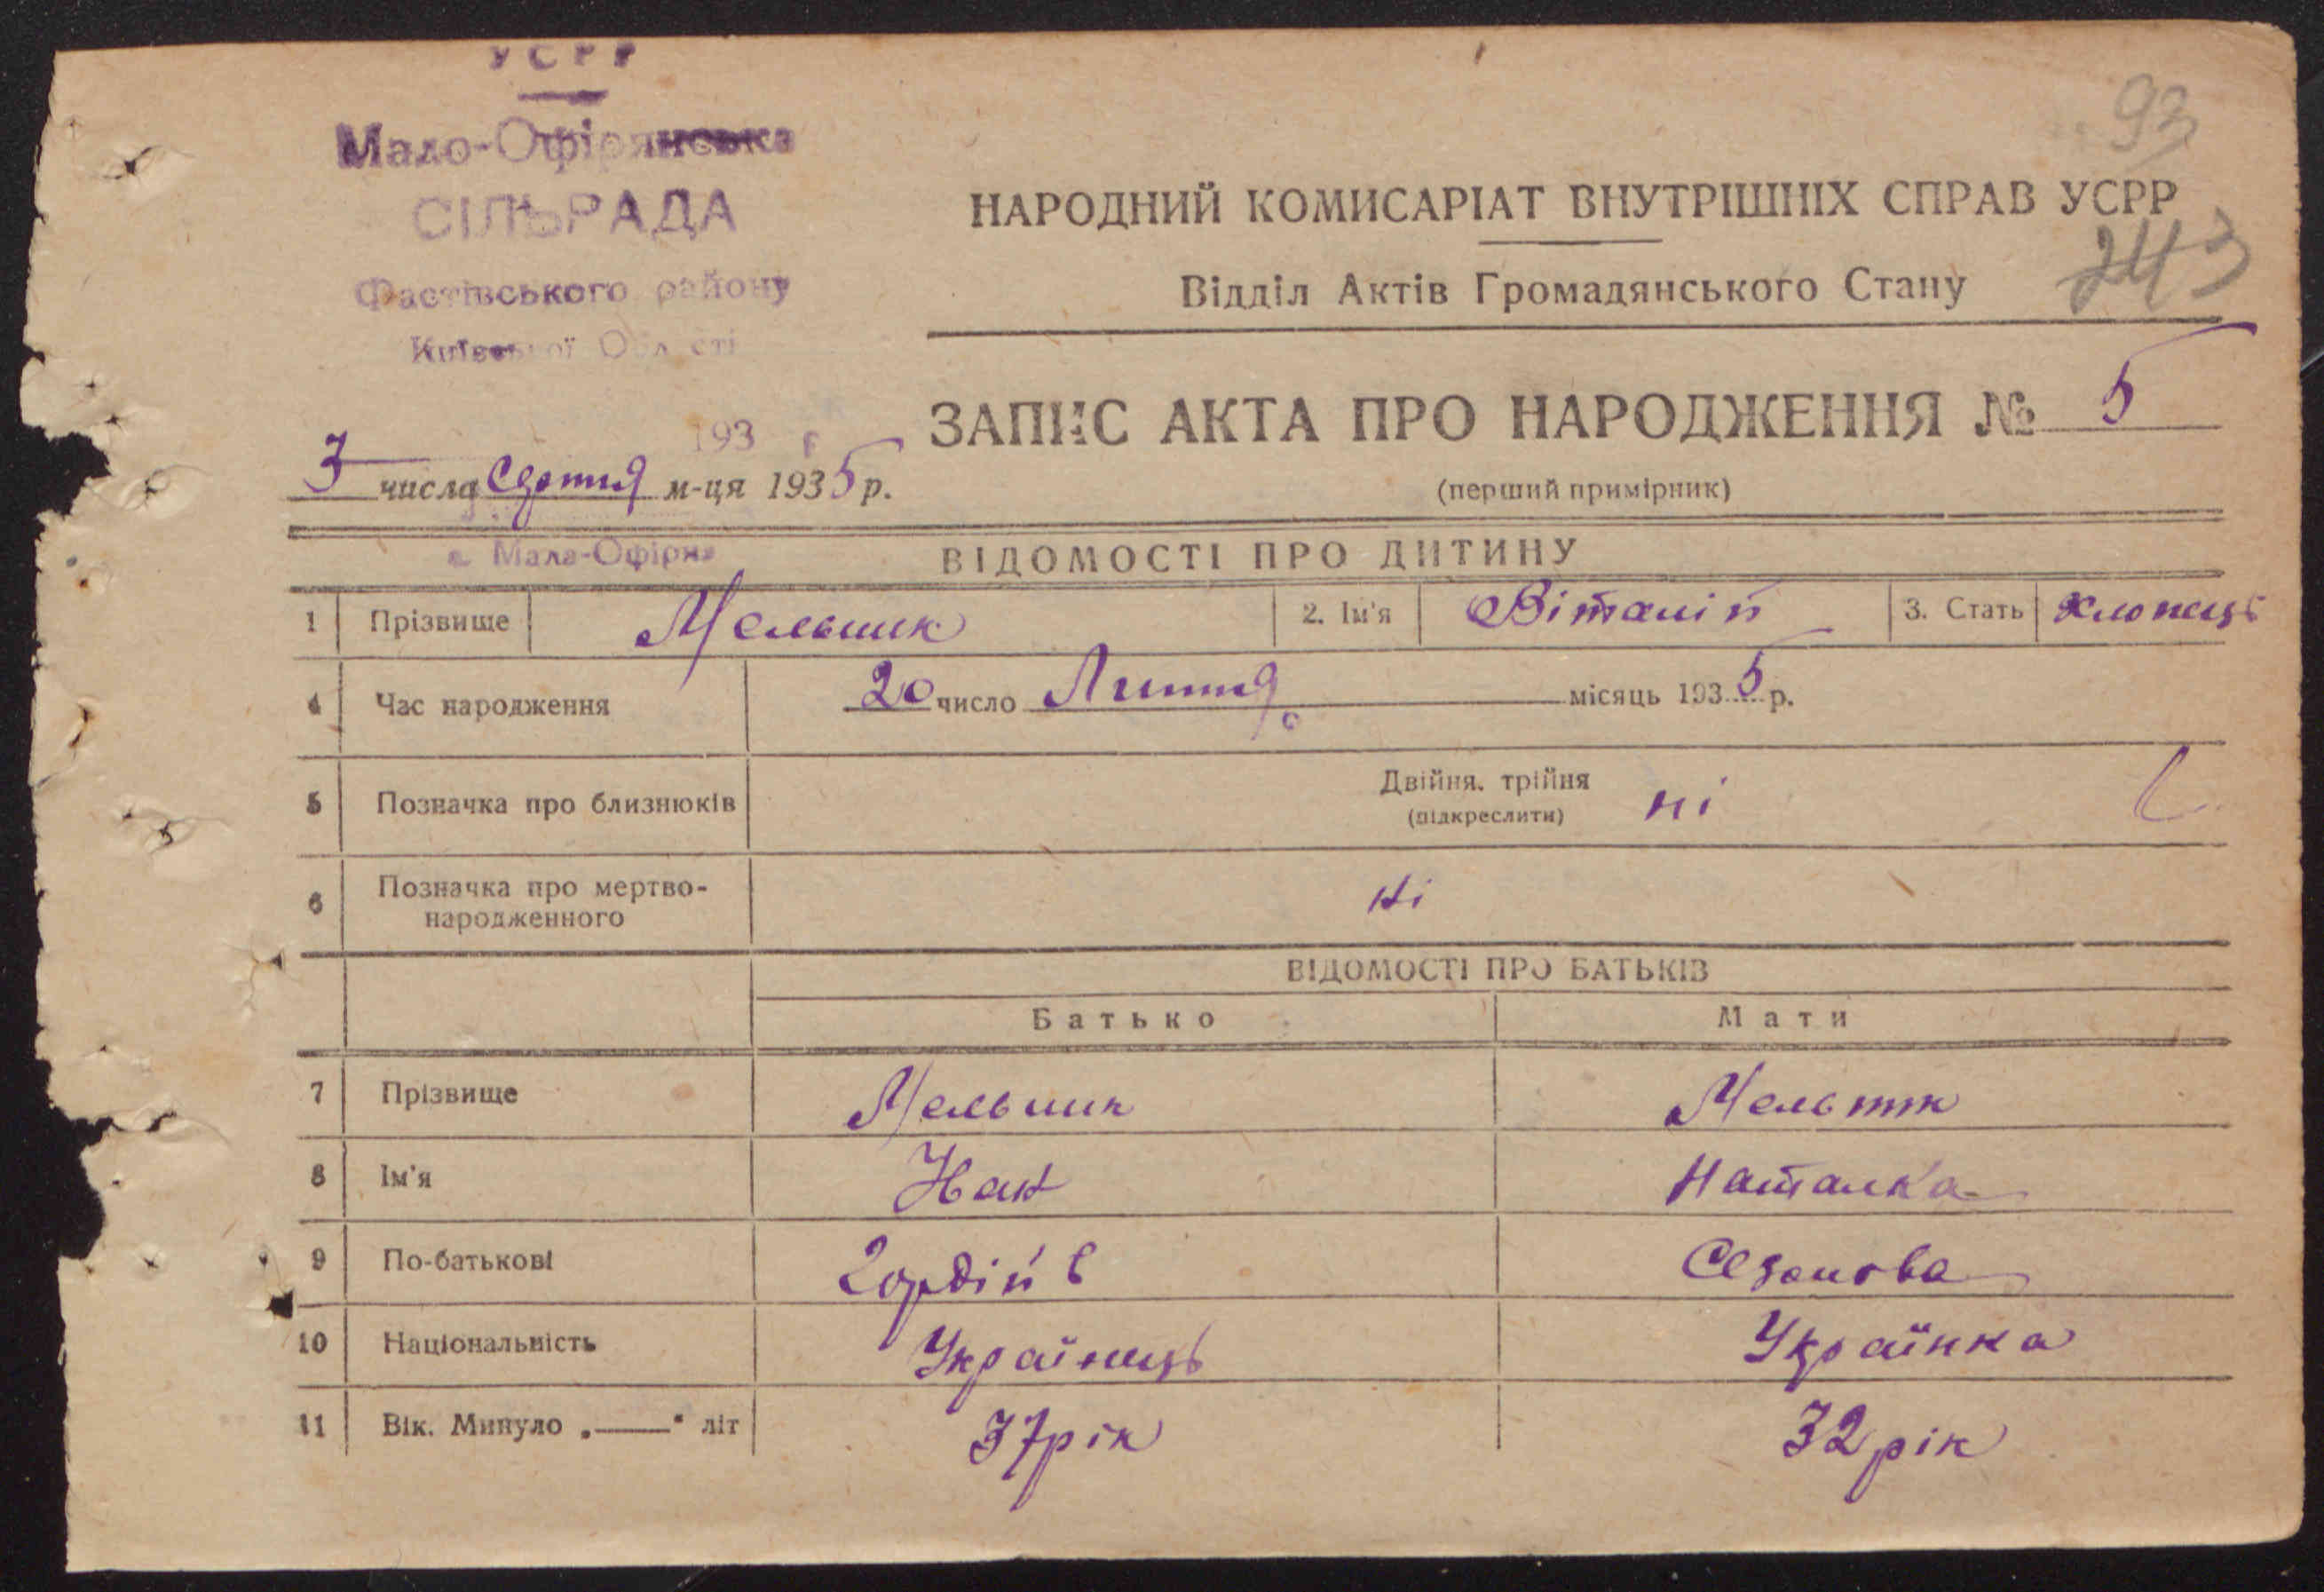 УСРР
Мало-Офірянська
СІЛЬРАДА
Фастівського району
Київської Області
93
НАРОДНИЙ КОМИСАРІАТ ВНУТРІШНІХ СПРАВ УСРР
243
Відділ Актів Громадянського Стану
ЗАПИС АКТА ПРО НАРОДЖЕННЯ № 5
193 р
3 числа Серпня м-ця 1935 р.
(перший примірник)
с. Мала-Офірна
ВІДОМОСТІ ПРО ДИТИНУ
1 Прізвище Мельник 2. Ім'я Віталій 3. Стать Хлопець
4 Час народження 20 число Липня місяць 1935 р.
5 Позначка про близнюків Двійня, трійня (підкреслити) ні
6 Позначка про мертво-
народженного ні
ВІДОМОСТІ ПРО БАТЬКІВ
Батько Мати
7 Прізвище Мельник Мельник
8 Ім'я Наталка
9 По-батькові Гордіїв
10 Національність Українець Українка
11 Вік. Минуло „——“ літ 37 рік 32 рік